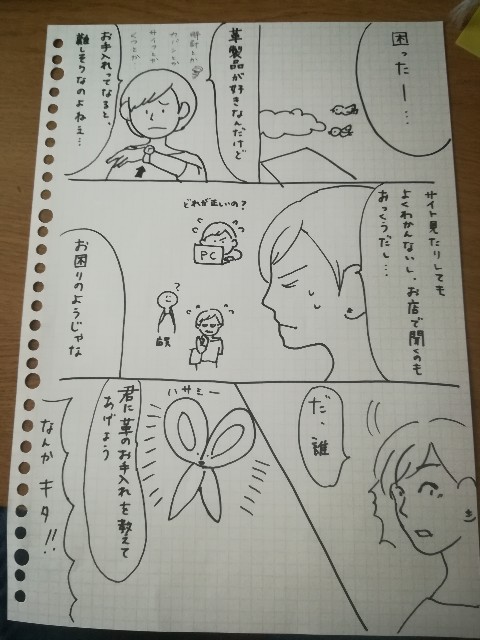 困ったー…
革製品が好きなんだけど
時計とか
カバンとか
サイフとか
くつとか…
お手入れってなると、
難しそうなのよねぇ…
サイト見たりしても
よくわかんないし、お店で聞くのも
おっくうだし…
どれが正しいの?
PC
?
店員
お困りのようじゃな
だ、誰
ハサミー
君に革のお手入れを教えて
あげよう
なんか キタ!!